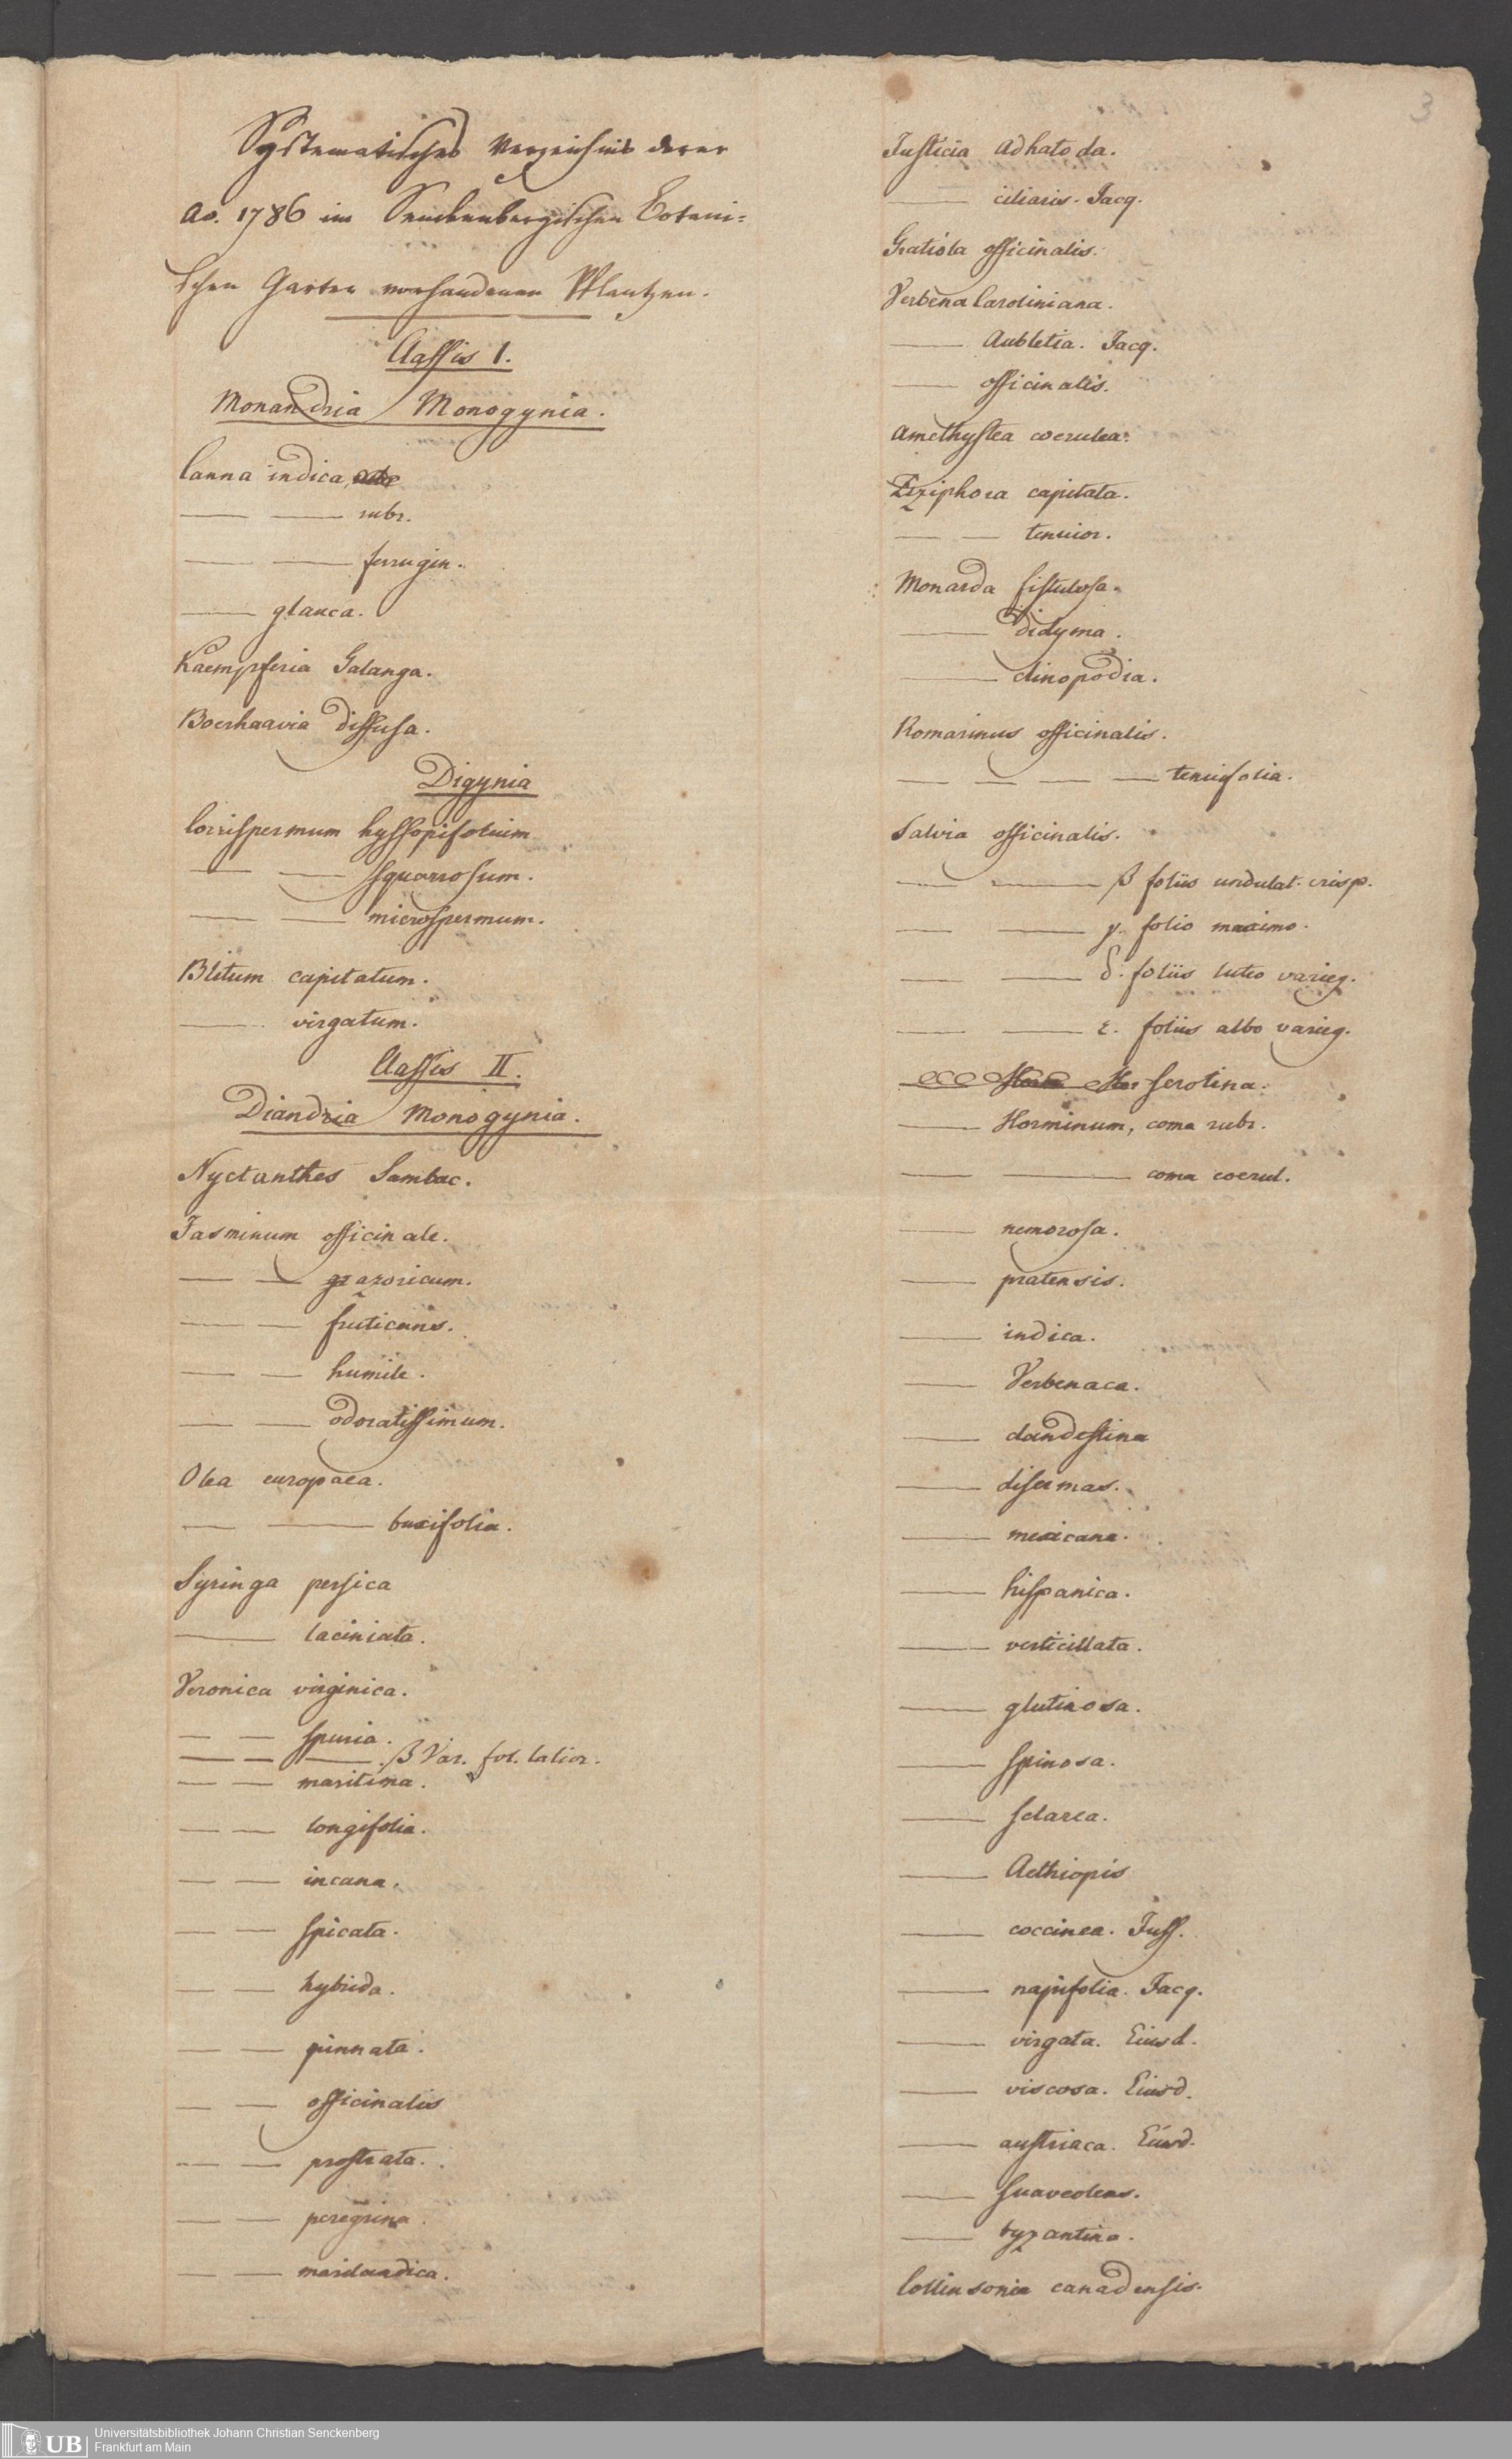 Systematisches Verzeichnis derer
Ao. 1786 im Senckenbergischen Botani=
schen Garten vorhandenen Pflantzen.
Classis I.
Monandria Monogynia.
Canna indica,
—— —— rubr.
—— —— ferrugin.
—— glauca.
Kaempferia Galanga.
Boerhaavia diffusa.
Digynia
Corrispermum hyssopifolium
—— —— squarrosum.
—— —— microspermum.
Blitum capitatum.
—— virgatum.
Classis II.
Diandria Monogynia.
Nyctanthes Sambac.
Jasminum officinale.
—— —— azoricum.
—— —— fruticans.
—— —— humile.
—— —— odoratissimum.
Olea europaea.
—— —— buxifolia.
Syringa persica
—— laciniata.
Veronica virginica.
—— —— spuria.
—— —— —— β Var. fol. latior.
—— —— maritima.
—— —— longifolia.
—— —— incana.
—— —— spicata.
—— —— hybrida.
—— —— pinnata.
—— —— officinalis
—— —— prostrata.
—— —— peregrina.
—— —— marilandica.
3
Justicia Adhatoda.
—— ciliaris. Jacq.
Gratiola officinalis.
Verbena Caroliniana.
—— Aubletia. Jacq.
—— officinalis.
Amethystea coerulea.
Ziziphora capitata.
—— —— tenuior.
Monarda fistulosa.
—— didyma.
—— clinopodia.
Romarinus officinalis.
—— —— —— —— tenuifolia.
Salvia officinalis.
—— —— β foliis undulat. crisp.
—— —— γ. folio maximo.
—— —— δ. foliis luteo varieg.
—— —— ε. foliis albo varieg.
—— serotina.
—— Horminum, coma rubr.
—— —— coma coerul.
—— nemorosa.
—— pratensis.
—— indica.
—— Verbenaca.
—— clandestina
—— disermas.
—— mexicana.
—— hispanica.
—— verticillata.
—— glutinosa.
—— spinosa.
—— sclarea.
—— Aethiopis
—— coccinea. Juss.
—— napifolia. Jacq.
—— virgata. Eiusd.
—— viscosa. Eiusd.
—— austriaca. Eiusd.
—— suaveolens.
—— byzantina.
Collinsonia canadensis.
UB
Universitätsbibliothek Johann Christian Senckenberg
Frankfurt am Main